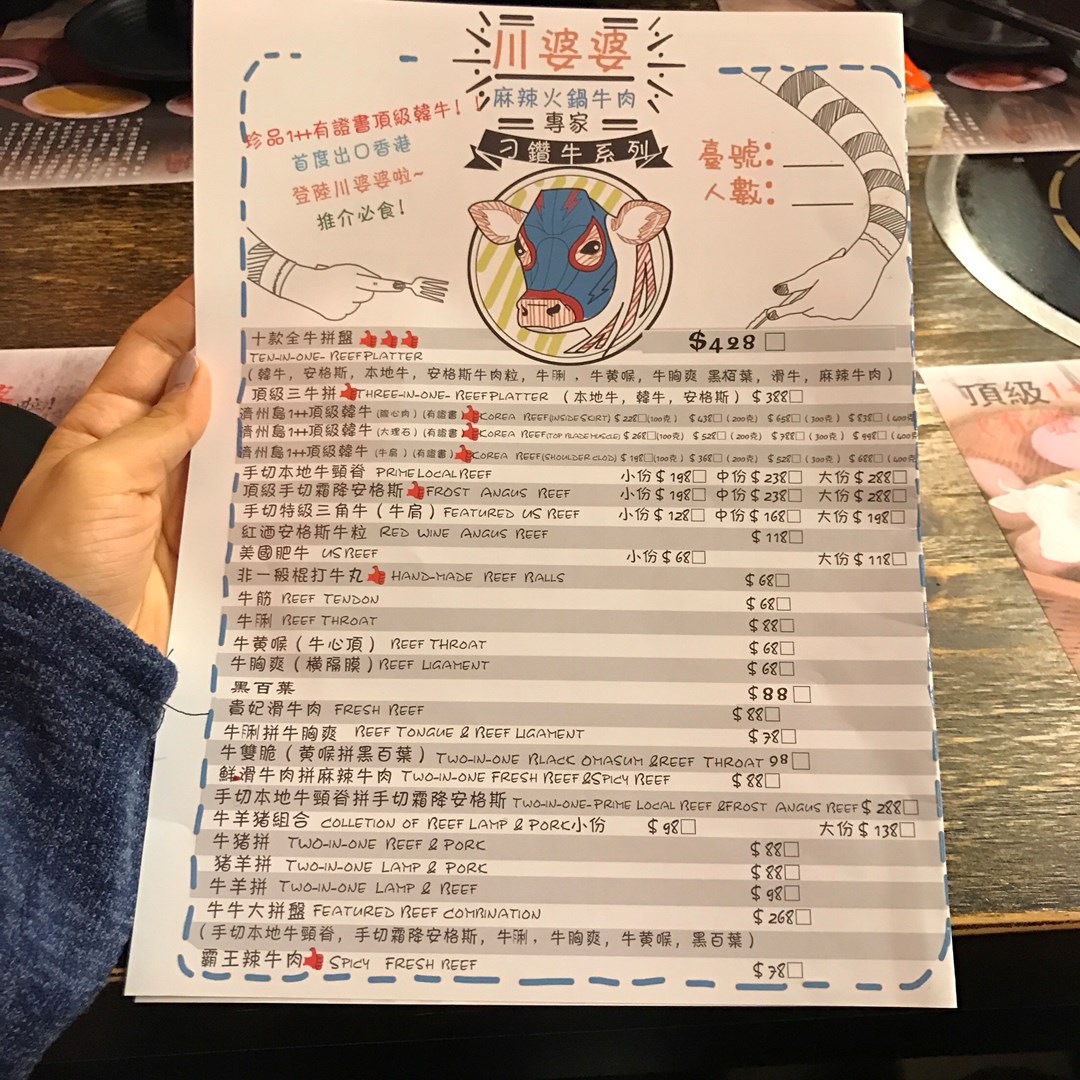 川婆婆
麻辣火鍋牛肉
專家
刁鑽牛系列
珍品1++有證書頂級韓牛!
首度出口香港
登陸川婆婆啦~
推介必食!
臺號:
人數:
十款全牛拼盤 $428
TEN-IN-ONE- BEEF PLATTER
(韓牛, 安格斯, 本地牛, 安格斯牛肉粒, 牛脷, 牛黄喉, 牛胸爽 黑栢葉, 滑牛, 麻辣牛肉)
頂級三牛拼 THREE-IN-ONE-BEEF PLATTER (本地牛, 韓牛, 安格斯) $388
濟州島1++頂級韓牛(膶心肉)(有證書) KOREA BEEF(INSIDE SKIRT) $228(100克) $438(200克) $658(300克) $838(400克
濟州島1++頂級韓牛(大理石)(有證書) KOREA BEEF(TOP BLADE MUSCLE) $268(100克) $528(200克) $788(300克) $998(400克
濟州島1++頂級韓牛(牛肩)(有證書) KOREA BEEF(SHOULDER CLOD) $198(100克) $368(200克) $528(300克) $688(400克
手切本地牛頸脊 PRIME LOCAL BEEF 小份$198 中份$238 大份$288
頂級手切霜降安格斯 FROST ANGUS BEEF 小份$198 中份$238 大份$288
手切特級三角牛(牛肩) FEATURED US BEEF 小份$128 中份$168 大份$198
紅酒安格斯牛粒 RED WINE ANGUS BEEF $118
美國肥牛 US BEEF 小份$68 大份$118
非一般棍打牛丸 HAND-MADE BEEF BALLS $68
牛筋 BEEF TENDON $68
牛脷 BEEF THROAT $88
牛黄喉(牛心頂) BEEF THROAT $68
牛胸爽(横隔膜) BEEF LIGAMENT $68
黑百葉 $88
貴妃滑牛肉 FRESH BEEF $88
牛脷拼牛胸爽 BEEF TONGUE & BEEF LIGAMENT $78
牛雙脆(黄喉拼黑百葉) TWO-IN-ONE BLACK OMASUM &REEF THROAT 98
鮮滑牛肉拼麻辣牛肉 TWO-IN-ONE FRESH BEEF &SPICY BEEF $88
手切本地牛頸脊拼手切霜降安格斯 TWO-IN-ONE-PRIME LOCAL BEEF &FROST ANGUS BEEF $288
牛羊猪組合 COLLETION OF BEEF LAMP & PORK小份 $98 大份$138
牛猪拼 TWO-IN-ONE BEEF & PORK $88
猪羊拼 TWO-IN-ONE LAMP & PORK $88
牛羊拼 TWO-IN-ONE LAMP & BEEF $98
牛牛大拼盤 FEATURED BEEF COMBINATION $268
(手切本地牛頸脊, 手切霜降安格斯, 牛脷, 牛胸爽, 牛黄喉, 黑百葉)
霸王辣牛肉 SPICY FRESH BEEF $78
頂級1